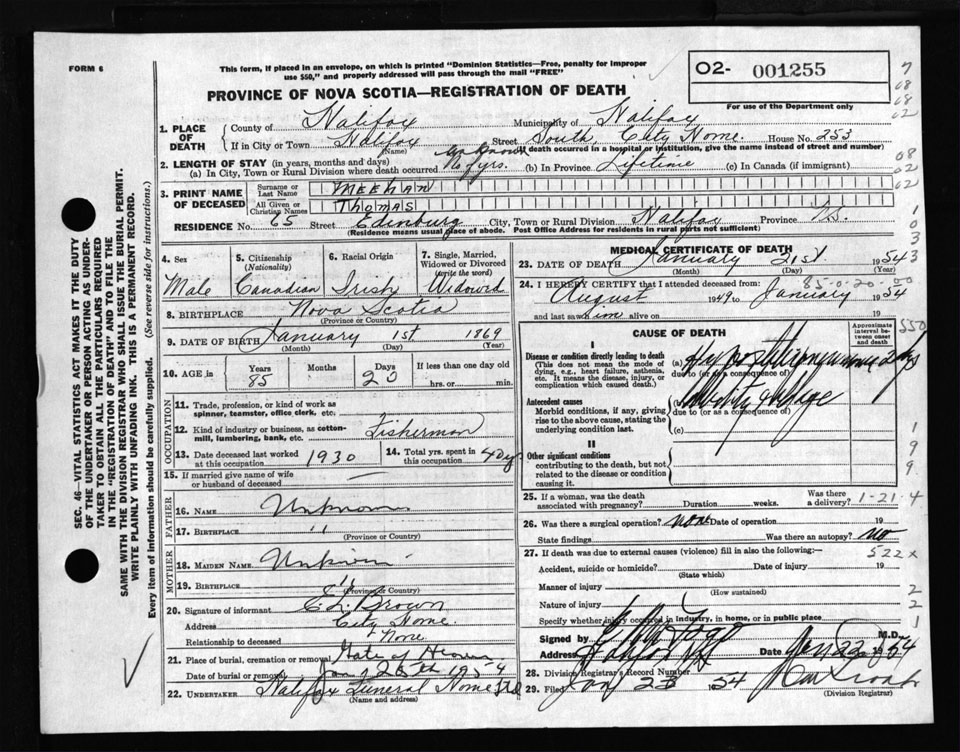 FORM 6
This form, if placed in an envelope, on which is printed "Dominion Statistics—Free, penalty for improper
use $50," and properly addressed will pass through the mail "FREE"
O2- 001255
For use of the Department only
PROVINCE OF NOVA SCOTIA—REGISTRATION OF DEATH
1. PLACE OF DEATH
County of Halifax Municipality of Halifax
If in City or Town Halifax Street South, City Home. House No. 253
(Name) (If death occurred in a hospital or institution, give the name instead of street and number)
2. LENGTH OF STAY (in years, months and days) unknown
(a) In City, Town or Rural Division where death occurred No. yrs. (b) In Province Lifetime (c) In Canada (if immigrant)
3. PRINT NAME OF DECEASED
Surname or Last Name MEEHAN
All Given or Christian Names THOMAS
RESIDENCE No. 65 Street Edinburg City, Town or Rural Division Halifax Province N.S.
(Residence means usual place of abode. Post Office Address for residents in rural parts not sufficient)
4. Sex
Male
5. Citizenship
(Nationality)
Canadian
6. Racial Origin
Irish
7. Single, Married, Widowed or Divorced
(write the word)
Widowed
8. BIRTHPLACE Nova Scotia
(Province or Country)
9. DATE OF BIRTH January 1st 1869
(Month) (Day) (Year)
10. AGE in
Years 85
Months
Days 20
If less than one day
hrs. or min.
OCCUPATION
11. Trade, profession, or kind of work as
spinner, teamster, office clerk, etc.
12. Kind of industry or business, as cotton-
mill, lumbering, bank, etc. Fisherman
13. Date deceased last worked
at this occupation 1930
14. Total yrs. spent in
this occupation 40 yrs
15. If married give name of wife
or husband of deceased
FATHER
16. Name Unknown
17. Birthplace "
(Province or Country)
MOTHER
18. Maiden Name Unknown
19. Birthplace "
(Province or Country)
20. Signature of informant Brown
Address City Home.
Relationship to deceased None
21. Place of burial, cremation or removal Gate of Heaven
Date of burial or removal Jan 25th 1954
22. UNDERTAKER Halifax Funeral Home Ltd
(Name and address)
MEDICAL CERTIFICATE OF DEATH
23. DATE OF DEATH January 21st 1954
(Month) (Day) (Year)
85-0-20-00
24. I HEREBY CERTIFY that I attended deceased from:
August 1949 to January 1954
and last saw him alive on 19
CAUSE OF DEATH
Approximate interval between onset and death
I
Disease or condition directly leading to death (a)
(This does not mean the mode of
dying, e.g., heart failure, asthenia,
etc. It means the disease, injury, or
complication which caused death.)
due to (or as a consequence of)
Antecedent causes (b)
Morbid conditions, if any, giving
rise to the above cause, stating the
underlying condition last.
due to (or as a consequence of)
(c)
II
Other significant conditions
contributing to the death, but not
related to the disease or condition
causing it.
25. If a woman, was the death
associated with pregnancy? Duration weeks. Was there a delivery?
1-21-4
26. Was there a surgical operation? none Date of operation 19
State findings Was there an autopsy? no
27. If death was due to external causes (violence) fill in also the following:—
522x
Accident, suicide or homicide? Date of injury 19
(State which)
Manner of injury
(How sustained)
Nature of injury
Specify whether injury occurred in Industry, in home, or in public place
Signed by M.D.
Address Halifax Date Jan 22 1954
28. Division Registrar's Record Number
29. Filed Jan 23 1954
(Division Registrar)
SEC. 46—VITAL STATISTICS ACT MAKES IT THE DUTY
OF THE UNDERTAKER OR PERSON ACTING AS UNDER-
TAKER TO OBTAIN ALL THE PARTICULARS REQUIRED
IN THE "REGISTRATION OF DEATH" AND TO FILE THE
SAME WITH THE DIVISION REGISTRAR WHO SHALL ISSUE THE BURIAL PERMIT.
WRITE PLAINLY WITH UNFADING INK. THIS IS A PERMANENT RECORD.
Every item of information should be carefully supplied. (See reverse side for instructions.)